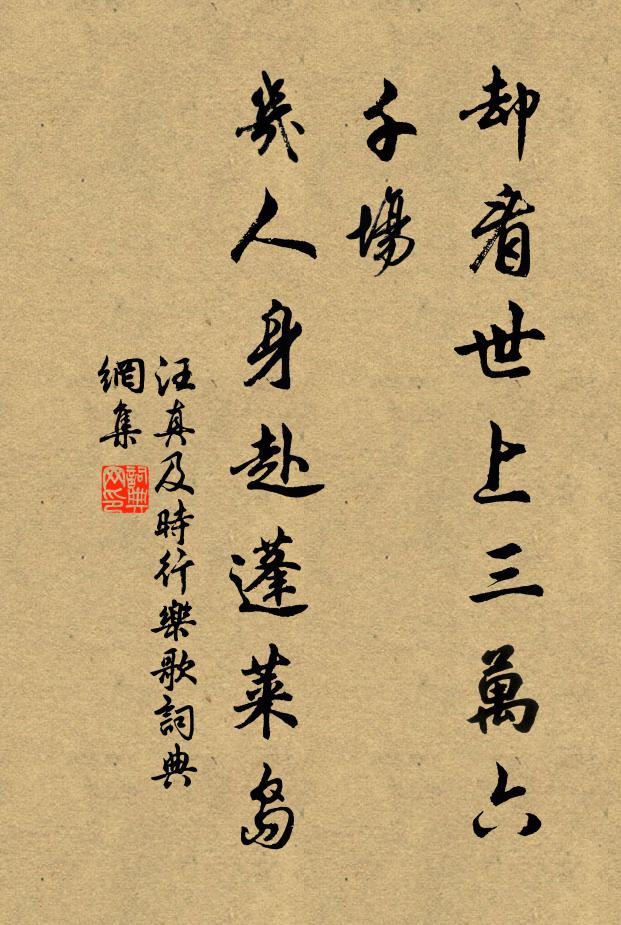 却看世上三萬六
千場
幾人身赴蓬萊島
汪真及時行樂歌詞典
網集
詞典
网印